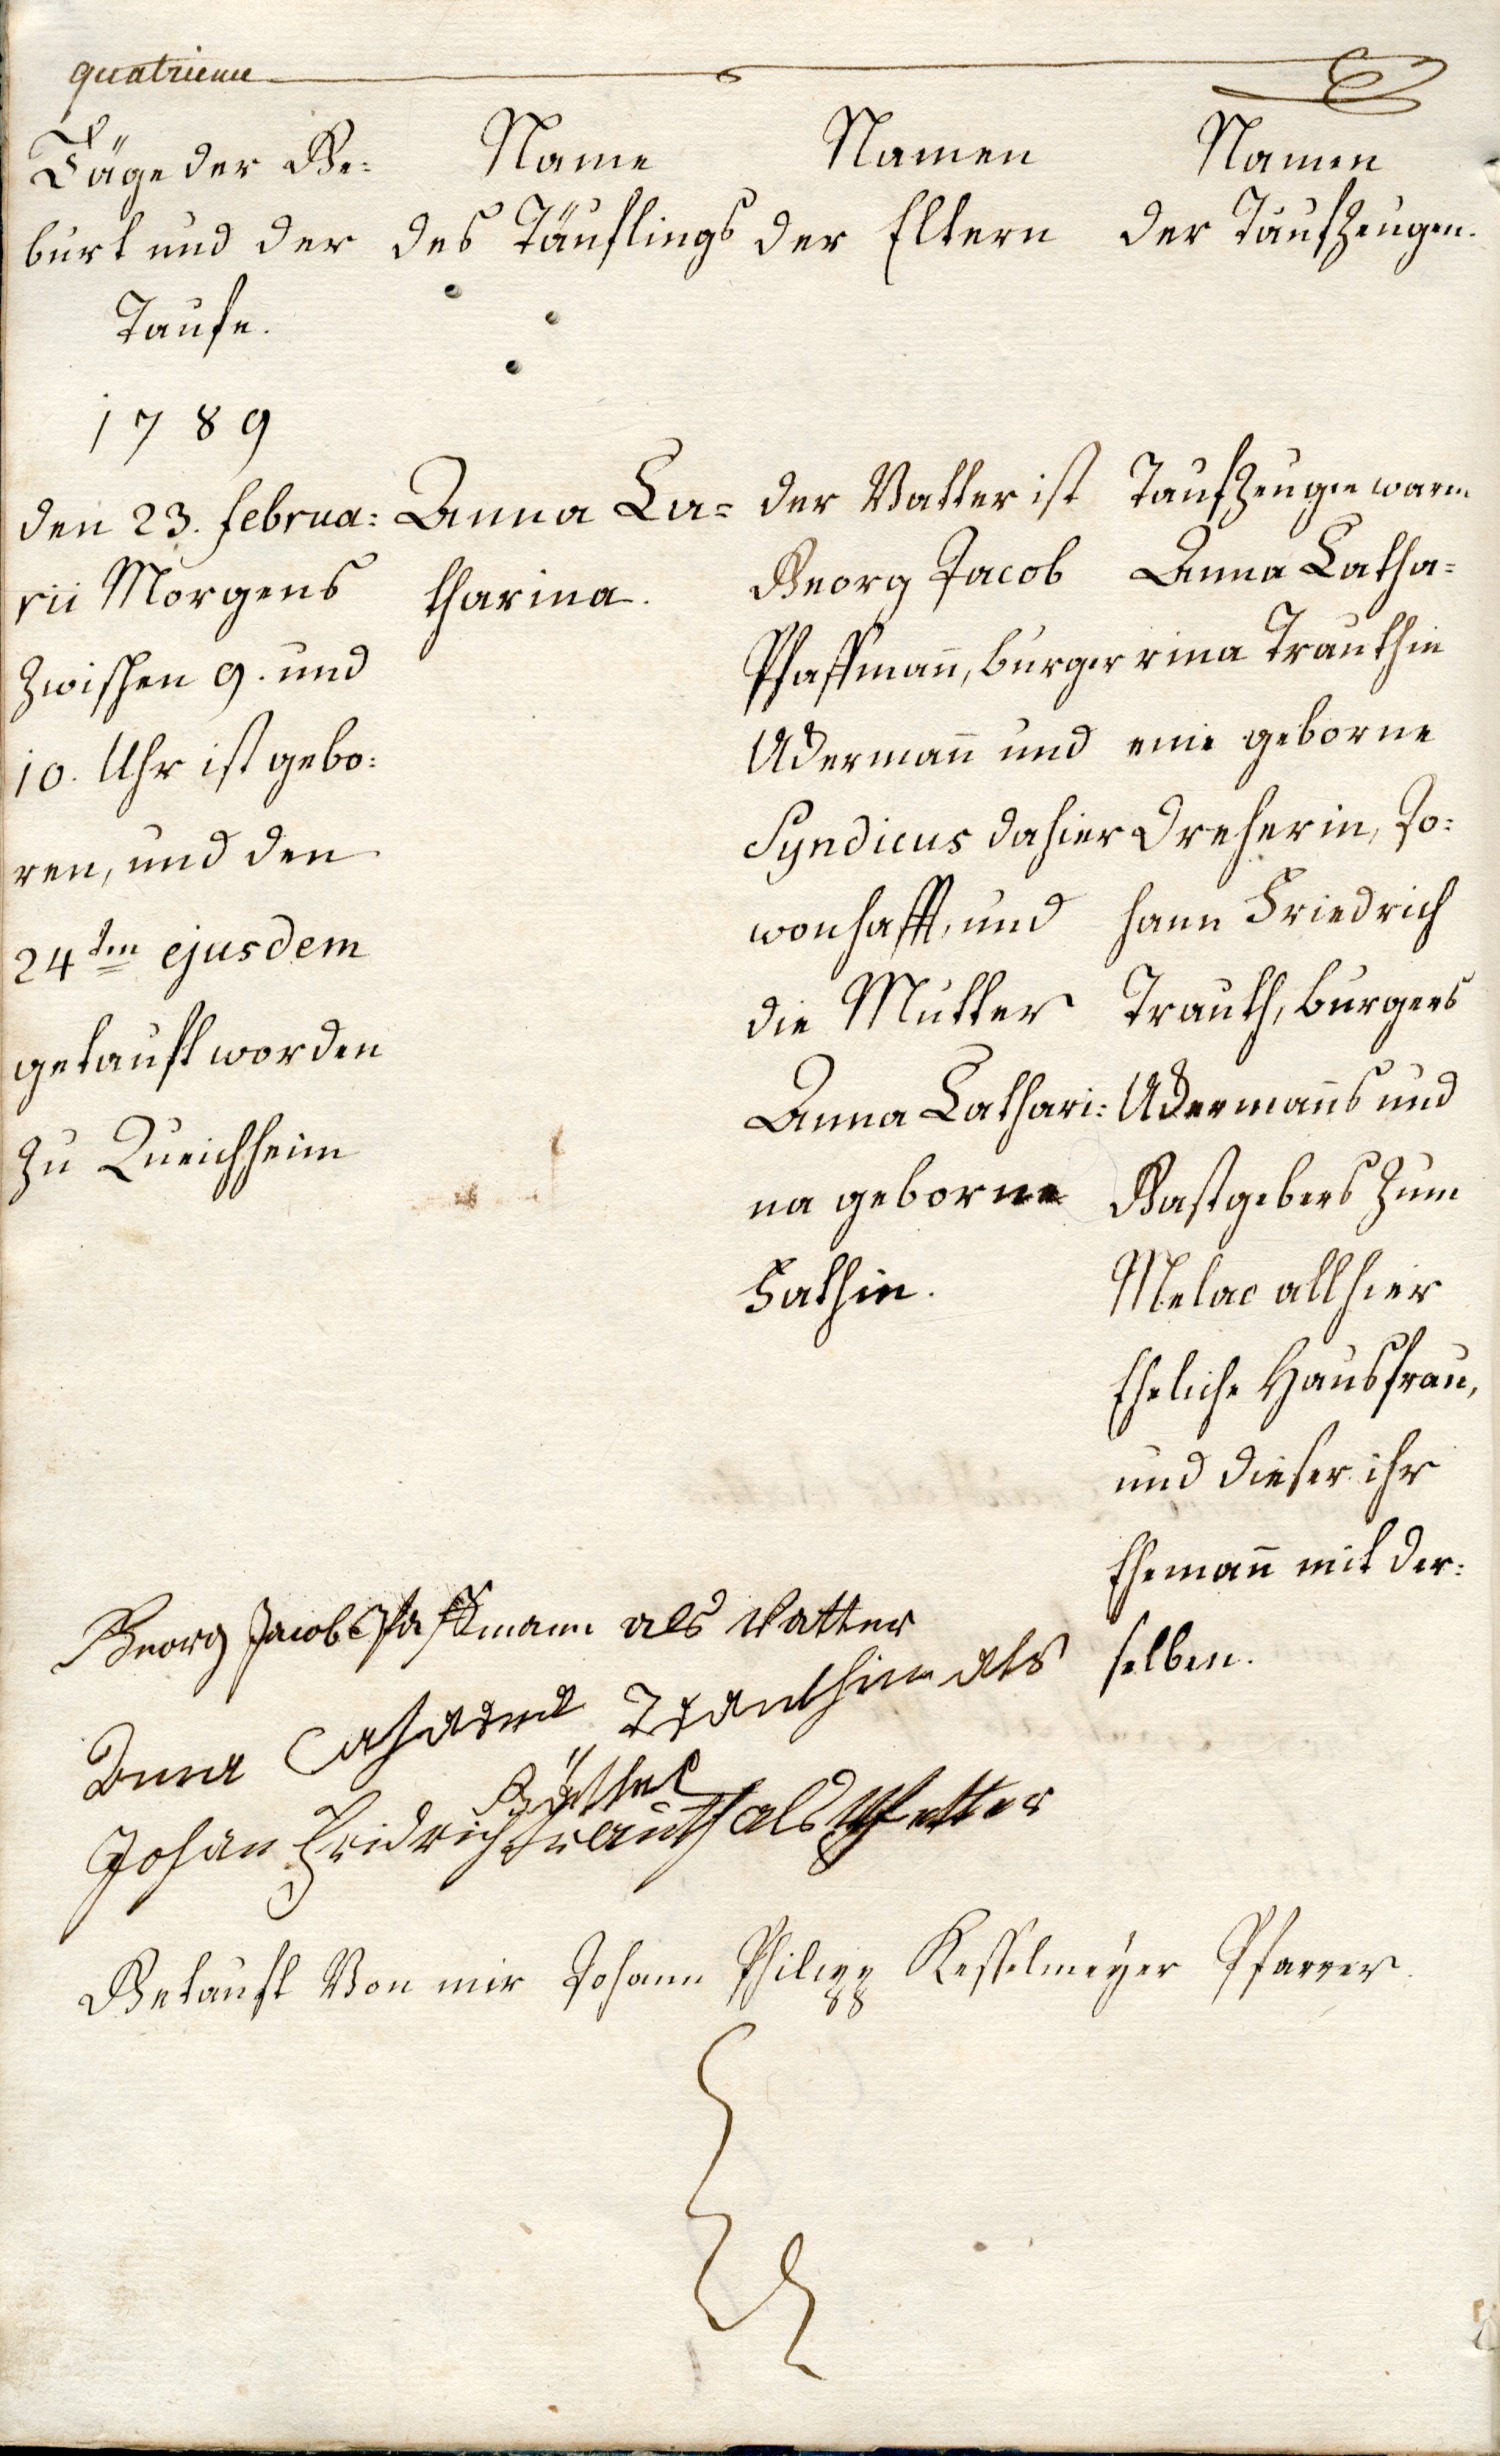 quatrieme
Täge der Ge=
burt und der
Taufe.
Name
des Täuflings
Namen
der Eltern
Namen
der Taufzeugen.
1789
den 23. Februa=
rii Morgens
zwischen 9. und
10. Uhr ist gebo=
ren, und den
24ten ejusdem
getauft worden
zu Queichheim
Anna Ca=
tharina.
der Vatter ist
Georg Jacob
Pfaffmañ, burger
Ackermañ und
Syndicus dahier
wonhafft, und
die Mutter
Anna Cathari=
na geborne
Fathin.
Taufzeugen waren
Anna Catha=
rina Trauthin
eine geborne
Dreherin, Jo=
hann Friedrich
Trauth, burgers
Ackermañs und
Gastgebers zum
Melac allhier
Eheliche Hausfrau,
und dieser ihr
Ehemañ mit der=
selben.
Georg Jacob Pfaffmann als Vatter
Anna Catharina Trauthin als
Göthel
Johan Fridrich Trauth als Pfetter
Getauft Von mir Johann Philipp Kesselmeyer Pfarrer.